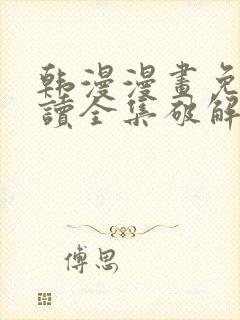 韩漫漫畫免
讀全集破解
傅思